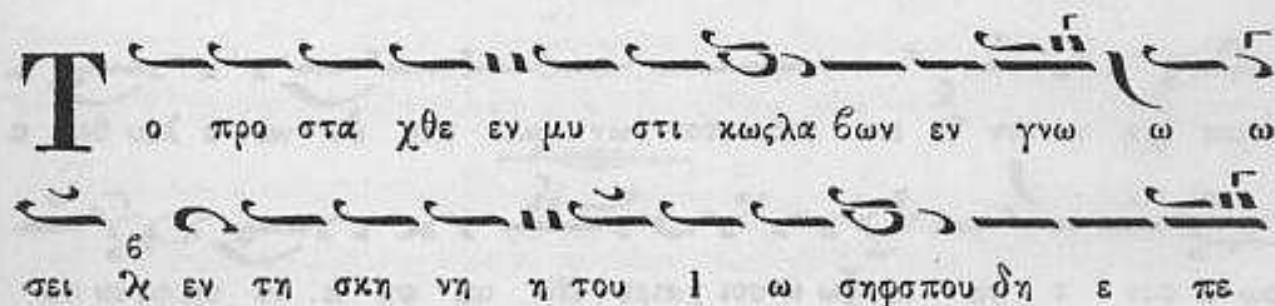 Το προ στα χθε εν μυ στι κωςλα βων εν γνω ω ω
σει λ εν τη σκη νη η του Ι ω σηφσπου δη ε πε